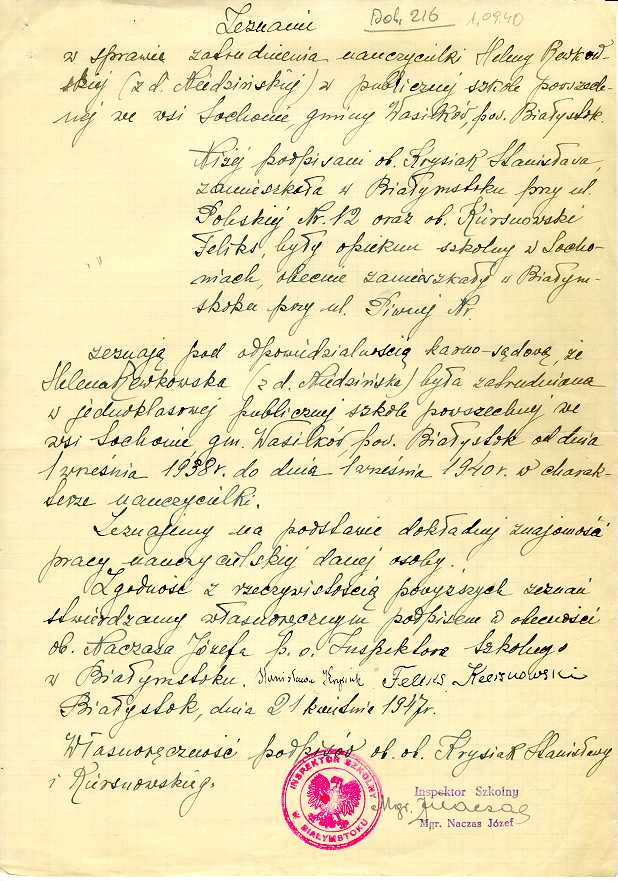 Zeznanie Dok. 216 1.09.40
w sprawie zatrudnienia nauczycielki Heleny Rewkow-
skiej (z d. Niedzińskiej) w publicznej szkole powszech-
nej we wsi Sochonie, gminy Wasilków, pow. Białystok.
Niżej podpisani ob. Krysiak Stanisława,
zamieszkała w Białymstoku przy ul.
Polskiej Nr. 12 oraz ob. Kursnowski
Feliks, były opiekun szkolny w Socho-
niach, obecnie zamieszkały w Białym-
stoku przy ul. Piwnej Nr.
zeznają pod odpowiedzialnością karno-sądową, że
Helena Rewkowska (z d. Niedzińska) była zatrudniona
w jednoklasowej publicznej szkole powszechnej we
wsi Sochonie gm. Wasilków, pow. Białystok od dnia
1 września 1938 r. do dnia 1 września 1940 r. w charak-
terze nauczycielki.
Zeznajemy na podstawie dokładnej znajomości
pracy nauczycielskiej danej osoby.
Zgodność z rzeczywistością powyższych zeznań
stwierdzamy własnoręcznym podpisem w obecności
ob. Naczasa Józefa p. o. Inspektora Szkolnego
w Białymstoku. Stanisława Krysiak Feliks Kursnowski
Białystok, dnia 21 kwietnia 1947 r.
Własnoręczność podpisów ob. ob. Krysiak Stanisławy
i Kursnowskiego.
INSPEKTOR SZKOLNY
W BIAŁYMSTOKU
Inspektor Szkolny
Mgr. Naczas
Mgr. Naczas Józef